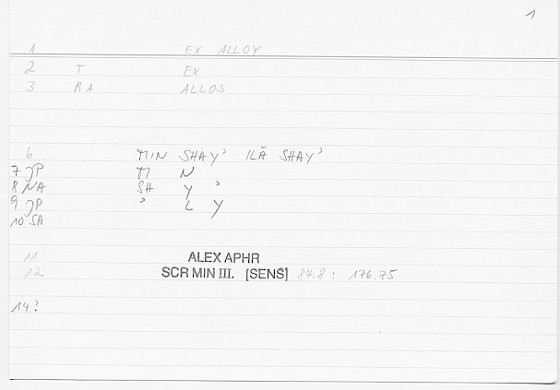 1
1 EX ALLOY
2 T EX
3 RA ALLOS
6 MIN SHAY' ILĀ SHAY'
7 JP M N
8 NA SH Y '
9 JP ' L Y
10 SA
11 ALEX APHR
12 SCR MIN III. [SENS] 84.8 : 176.75
14?